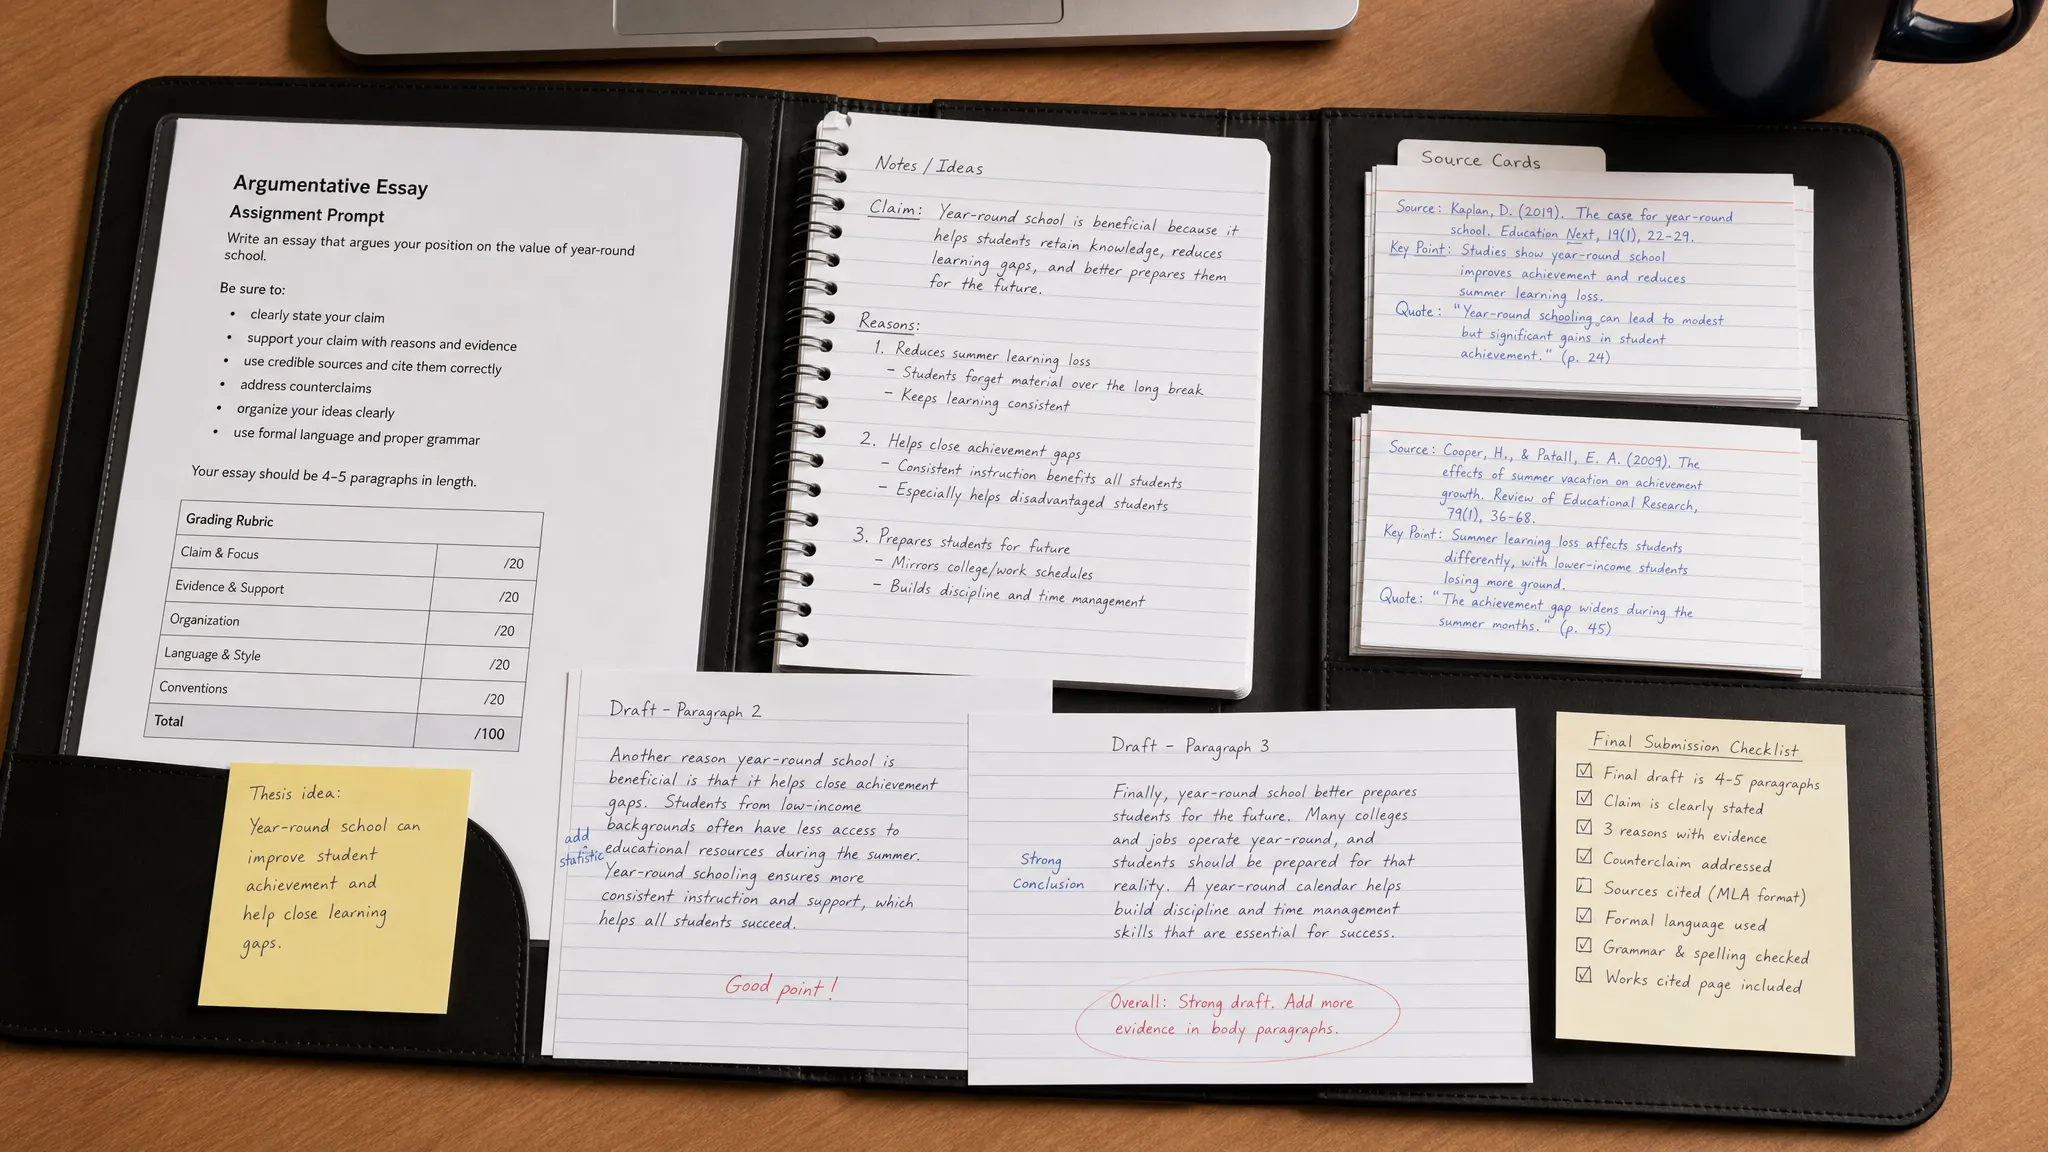 Argumentative Essay
Assignment Prompt
Write an essay that argues your position on the value of year-round
school.
Be sure to:
• clearly state your claim
• support your claim with reasons and evidence
• use credible sources and cite them correctly
• address counterclaims
• organize your ideas clearly
• use formal language and proper grammar
Your essay should be 4–5 paragraphs in length.
Grading Rubric
Claim & Focus /20
Evidence & Support /20
Organization /20
Language & Style /20
Conventions /20
Total /100
Thesis idea:
Year-round school can
improve student
achievement and
help close learning
gaps.
Notes / Ideas
Claim: Year-round school is beneficial because it
helps students retain knowledge, reduces
learning gaps, and better prepares them
for the future.
Reasons:
1. Reduces summer learning loss
– Students forget material over the long break
– Keeps learning consistent
2. Helps close achievement gaps
– Consistent instruction benefits all students
– Especially helps disadvantaged students
3. Prepares students for future
– Mirrors college/work schedules
– Builds discipline and time management
Source Cards
Source: Kaplan, D. (2019). The case for year-round
school. Education Next, 19(1), 22-29.
Key Point: Studies show year-round school
improves achievement and reduces
summer learning loss.
Quote: "Year-round schooling can lead to modest
but significant gains in student
achievement." (p. 24)
Source: Cooper, H., & Patall, E. A. (2009). The
effects of summer vacation on achievement
growth. Review of Educational Research,
79(1), 36-68.
Key Point: Summer learning loss affects students
differently, with lower-income students
losing more ground.
Quote: "The achievement gap widens during the
summer months." (p. 45)
Draft – Paragraph 2
Another reason year-round school is
beneficial is that it helps close achievement
gaps. Students from low-income
backgrounds often have less access to
educational resources during the summer.
Year-round schooling ensures more
consistent instruction and support, which
helps all students succeed.
add
statistic
Good point!
Draft – Paragraph 3
Finally, year-round school better prepares
students for the future. Many colleges
and jobs operate year-round, and
students should be prepared for that
reality. A year-round calendar helps
build discipline and time management
skills that are essential for success.
Strong
Conclusion
Overall: Strong draft. Add more
evidence in body paragraphs.
Final Submission Checklist
☑ Final draft is 4-5 paragraphs
☑ Claim is clearly stated
☑ 3 reasons with evidence
☑ Counterclaim addressed
☐ Sources cited (MLA format)
☑ Formal language used
☑ Grammar & spelling checked
☑ Works cited page included